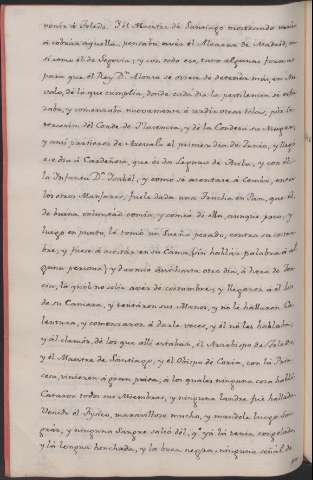 venir á Toledo. Y él Maestre de Santiago mostrando venir
á cobrar aquella, pensaba aver el Alcazar de Madrid, an-
si como él de Segovia; y con todo eso, tuvo algunas formas
para que el Rey D. Alonso se oviese de detener más, en Are-
valo, de lo que cumplia, donde cada dia la pestilencia se es-
daba, y comenzaba nuevamente á
del Conde de Placencia, y de la Condesa su Muger,
y ansi partieron de Arevalo el primero dia de Junio, y llegó
ese dia á Cardeñosa, que és dos Leguas de Avila, y con él
la Infanta D. Isabél, y como se asentase á Comér, entre
los otros Manjares, fuele dada una Trucha en Pan, que él
de buena voluntad comia, y comió de ella, aunque poco, y
luego en punto le tomó un Sueño pesado, contra su costum-
bre, y fuese á acostar en su Cama, sin hablar palabra á al-
guna persona; y durmió alli hasta otro dia, á hora de Ter-
cia, lo qual no solia aver de costumbre; y llegaron á él los
de su Camara, y tentaron sus Manos, y no le hallaron Ca-
lentura, y comenzaron á darle voces, y él no les hablaba;
y al clamor, de los que alli estaban, él Arzobispo de Toledo
y él Maestre de Santiago, y él Obispo de Coria, con la Prin-
cesa, vinieron á gran priesa, á los quales ninguna cosa habló
Cataron todos sus Miembros, y ninguna Landre fué hallada.
Venido el Fisico, maravillose mucho, y mandole luego San-
grár, y ninguna Sangre salió dél, q.e yá la tenia congelada
y la lengua hinchada, y la boca negra, ninguna señal de